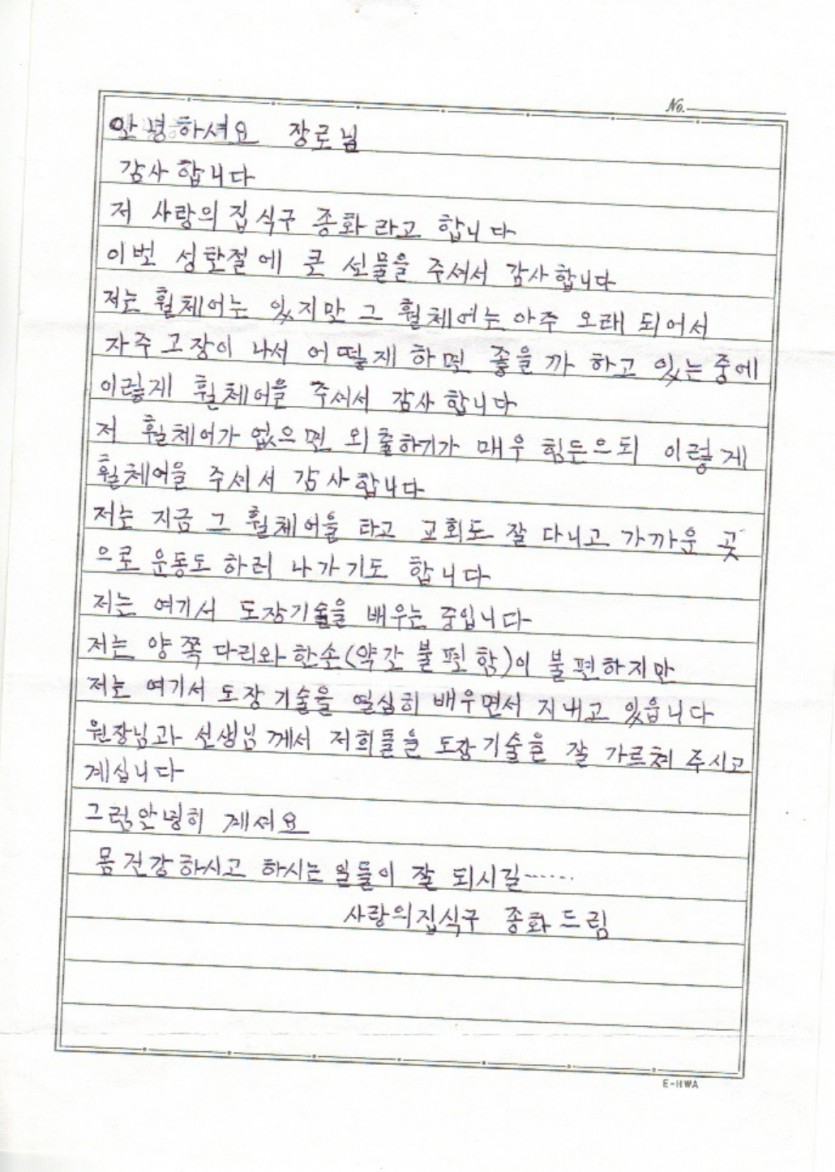 No.
안녕하셔요 장로님
감사합니다
저 사랑의집식구 종화라고 합니다
이번 성탄절에 큰 선물을 주셔서 감사합니다
저는 휠체어는 있지만 그 휠체어는 아주 오래 되어서
자주 고장이 나서 어떻게 하면 좋을까 하고 있는 중에
이렇게 휠체어을 주셔서 감사합니다
저 휠체어가 없으면 외출하기가 매우 힘든으되 이렇게
휠체어을 주셔서 감사합니다
저는 지금 그 휠체어을 타고 교회도 잘 다니고 가까운 곳
으로 운동도 하러 나가기도 합니다
저는 여기서 도장기술을 배우는 중입니다
저는 양쪽 다리와 한손(약간 불편함)이 불편하지만
저는 여기서 도장기술을 열심히 배우면서 지내고 있읍니다
원장님과 선생님께서 저희들을 도장기술을 잘 가르쳐 주시고
계십니다
그럼안녕히 계셔요
몸건강하시고 하시는 일들이 잘 되시길……
사랑의집식구 종화드림
E-HWA